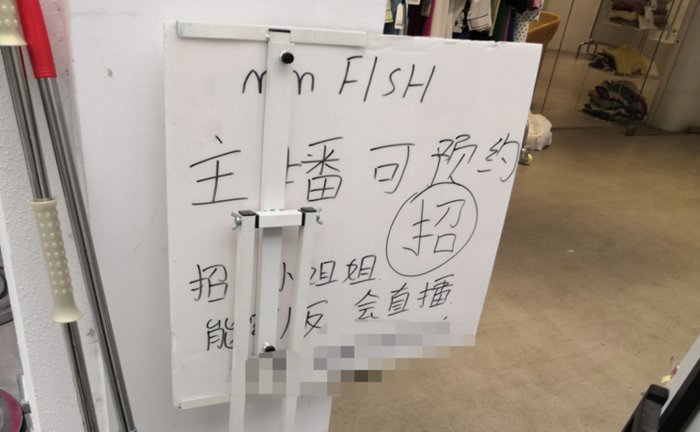 FISH
主播可预约
招
招小姐姐
能 会直播